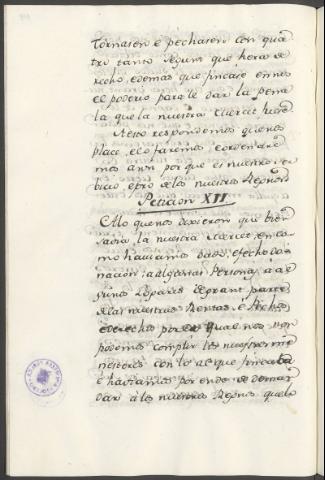 tornasen é pechasen con qua
tro tanto segunt que hera de
recho, édemas que fincase en nos
el poderio para le dar la pena
la que la nuestra mercet fuese
Aesto respondemos quenos
place, élo faremos éordenare
mos ansi por que es nuestro ser
bicio, épro delos nuestros Regnos
Peticion XII
Alo quenos dixieron que bien
savia la nuestra mercet, en co
mo haviamos dado, éfecho do
nacion, aalgunas Personas, é a al
gunos Logares degrant parte
delas nuestras Rentas, é Pechos
éderechos por lo qual nos non
podemos complir los nuestros me
nesteres con lo al que fincaba
é haviamos por ende de deman
dar á los nuestros Regnos quelo